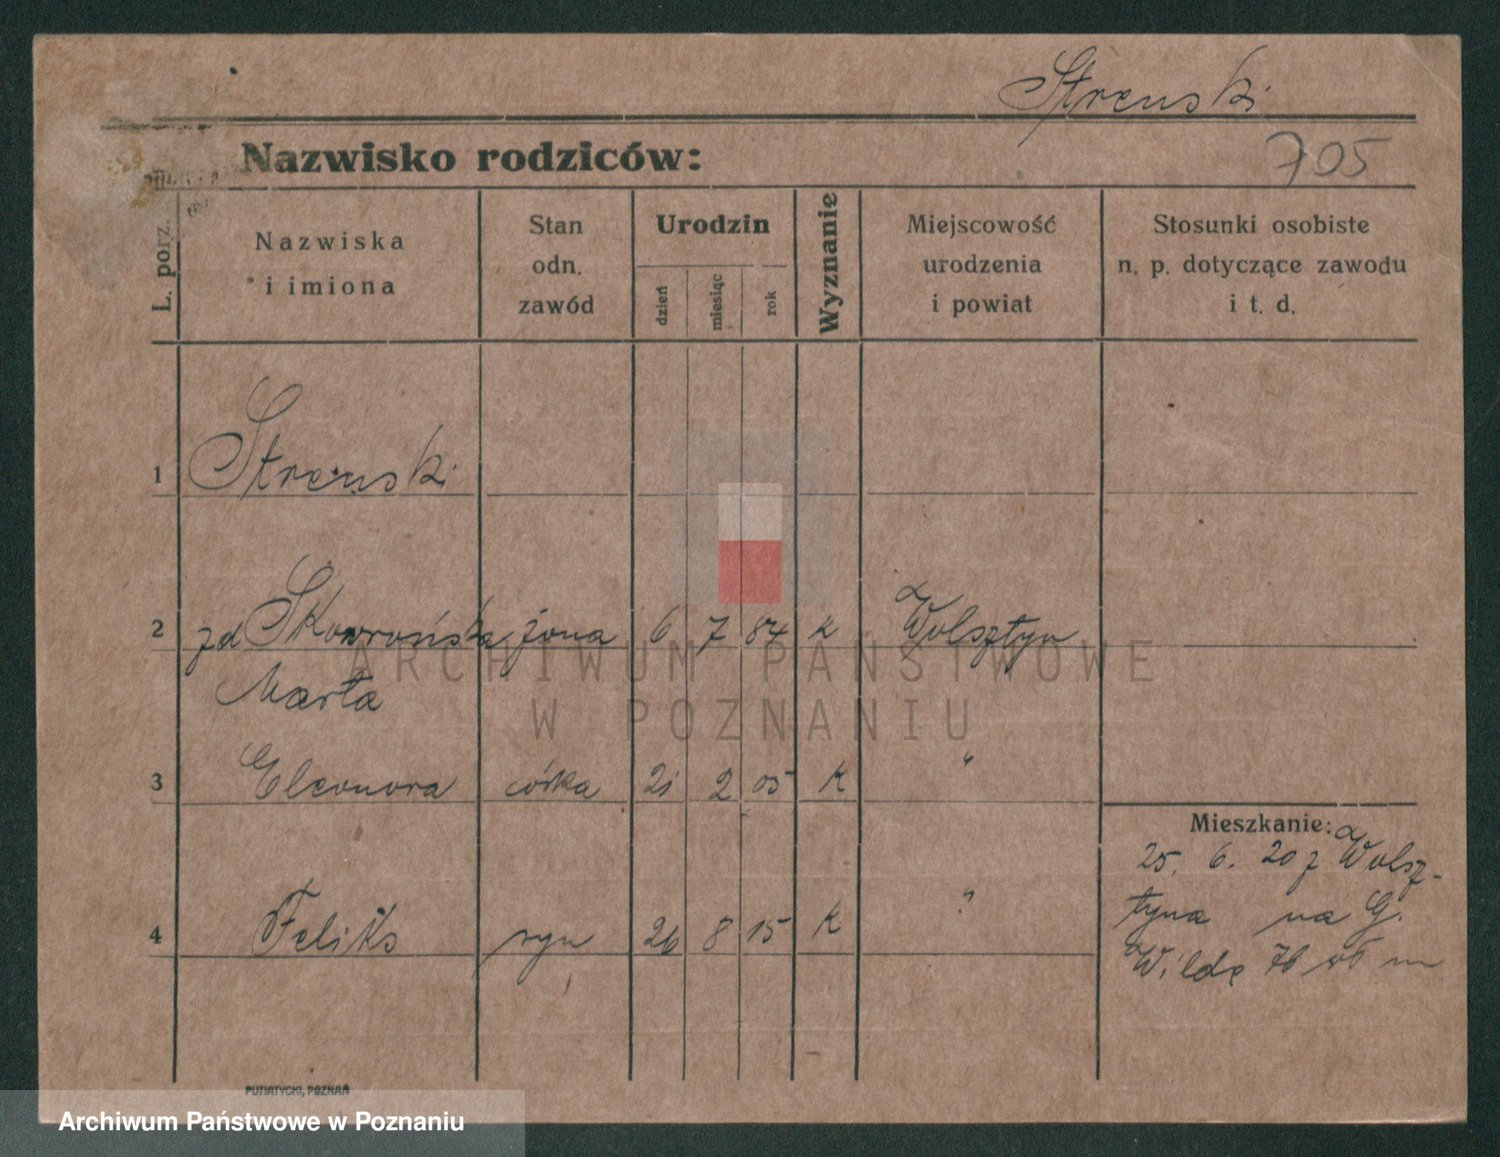 Strenski
705
Nazwisko rodziców:
L. porz.
Nazwiska
i imiona
Stan
odn.
zawód
Urodzin
dzień
miesiąc
rok
Wyznanie
Miejscowość
urodzenia
i powiat
Stosunki osobiste
n. p. dotyczące zawodu
i t. d.
1 Strenski
2 zd Skowrońska żona 6 7 84 k Wolsztyn
Marta
3 Eleonora córka 21 2 05 k "
4 Feliks syn 26 8 15 k "
Mieszkanie:
25. 6. 20 z Wolsz-
tyna na G.
Wildę 76
PUTIATYCKI, POZNAŃ
ARCHIWUM PAŃSTWOWE
W POZNANIU
Archiwum Państwowe w Poznaniu